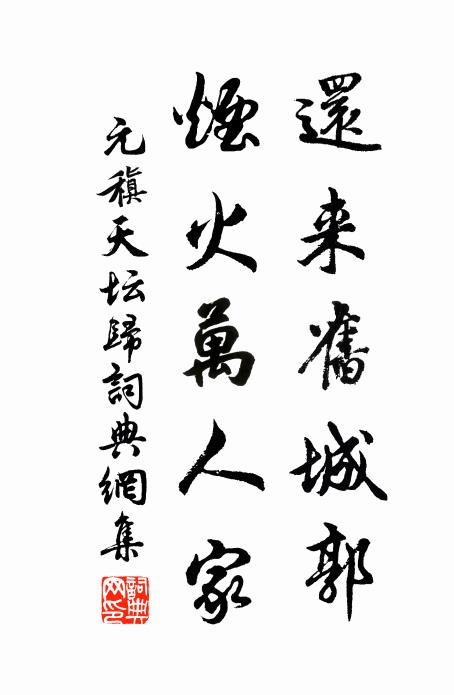 還来舊城郭
煙火萬人家
元稹天坛歸詞典網集
詞典網印